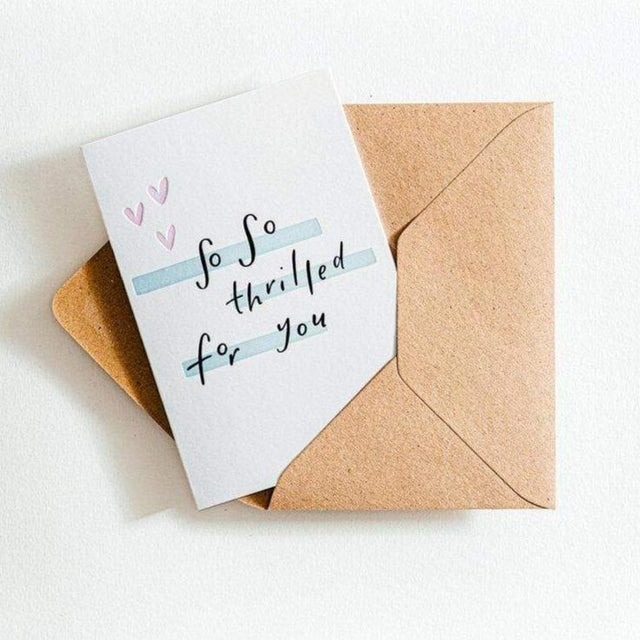 So So
thrilled
for you